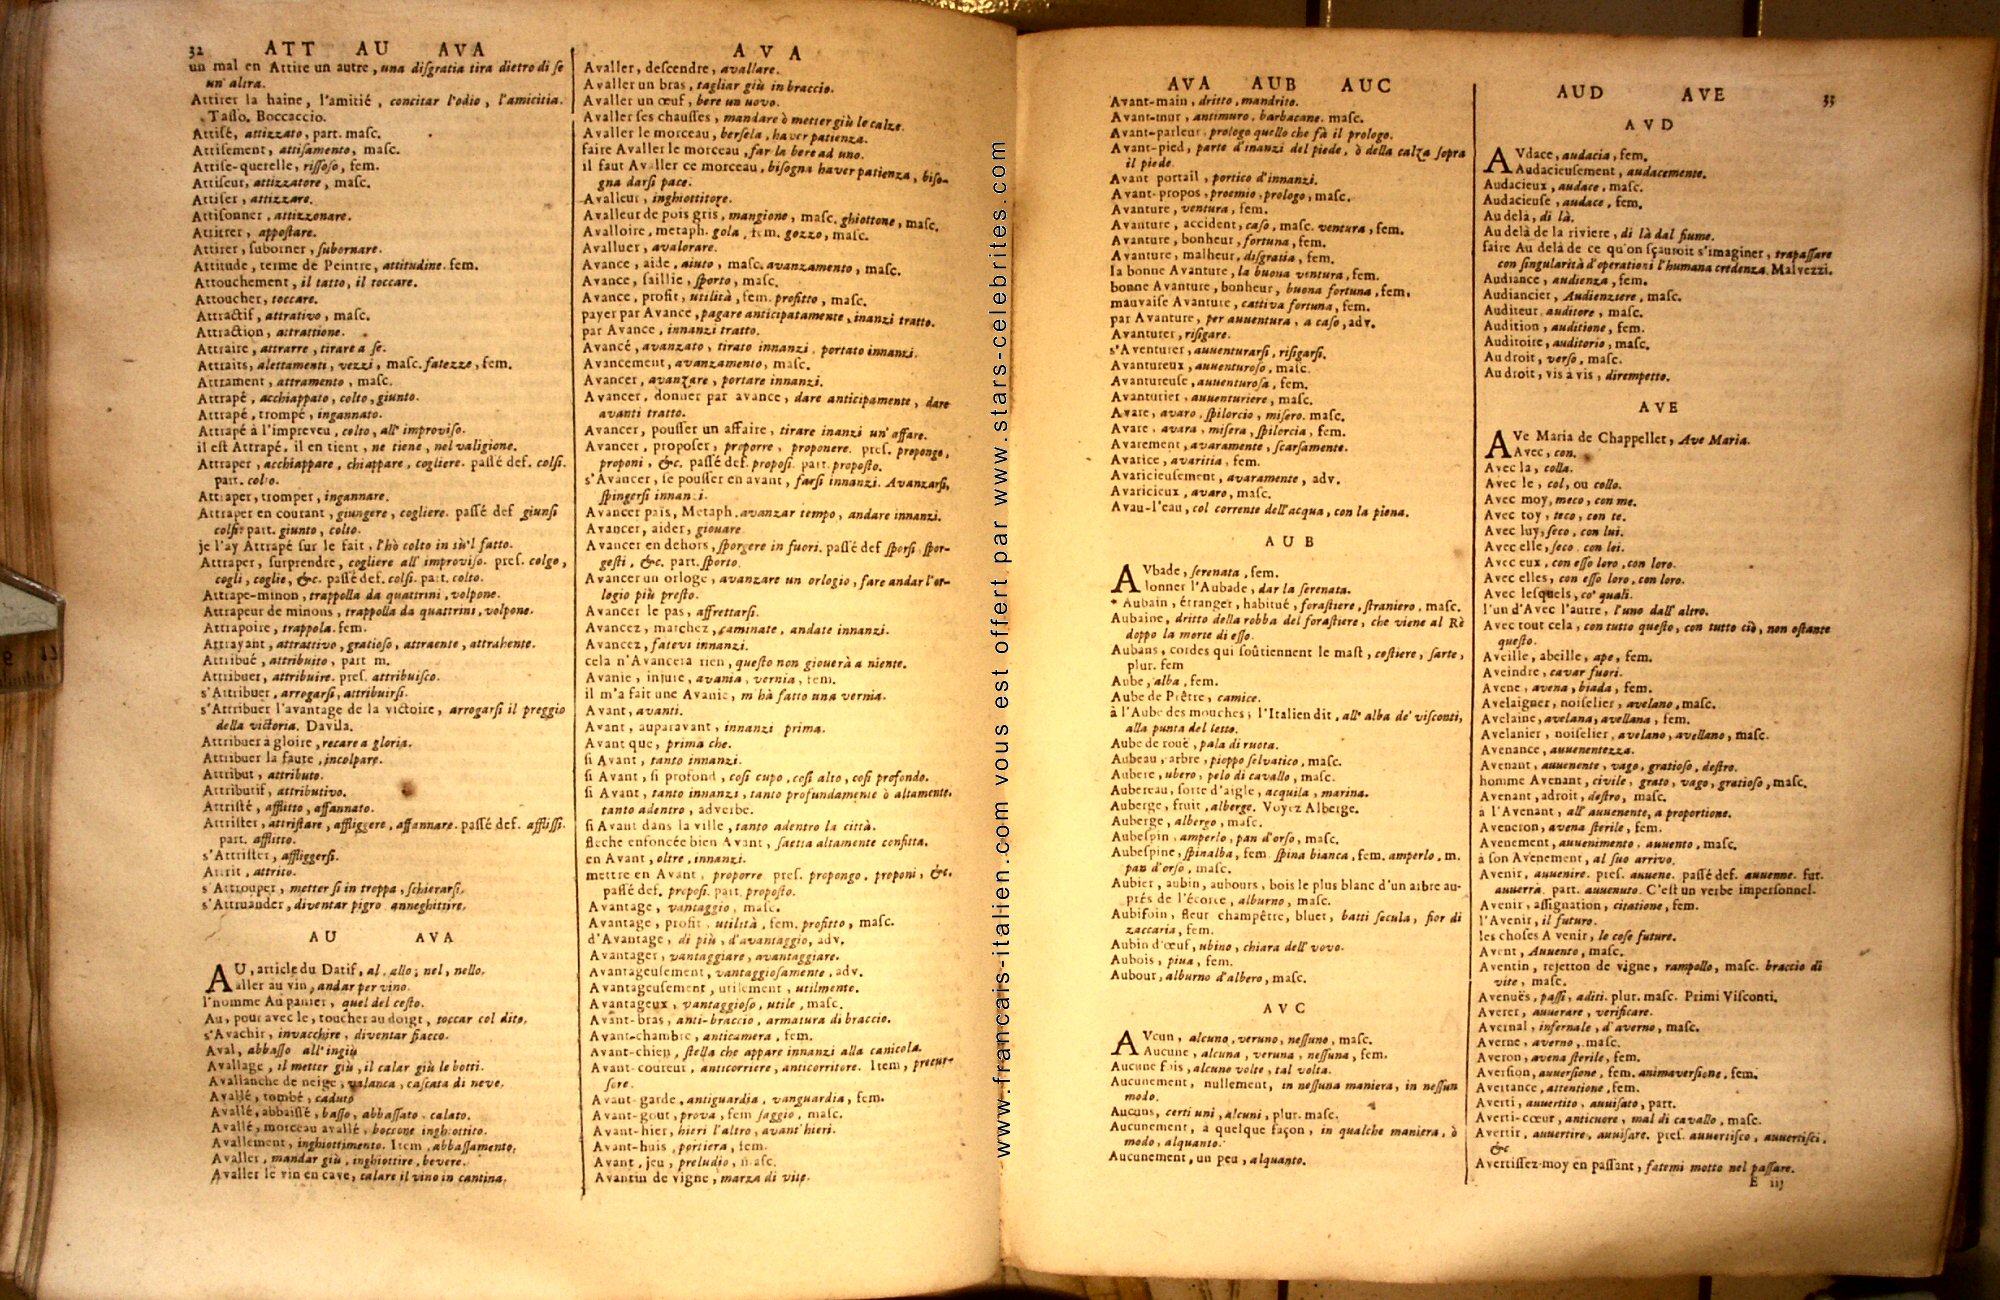 32 ATT AU AVA
un mal en Attire un autre, una disgratia tira dietro di se
un' altra.
Attirer la haine, l'amitié, concitar l'odio, l'amicitia.
Tasso. Boccaccio.
Attisé, attizzato, part. masc.
Attisement, attisamento, masc.
Attise-querelle, rissoso, fem.
Attiseur, attizzatore, masc.
Attiser, attizzare.
Attisonner, attizzonare.
Attitrer, appostare.
Attirer, suborner, subornare.
Attitude, terme de Peintre, attitudine. fem.
Attouchement, il tatto, il toccare.
Attoucher, toccare.
Attractif, attrativo, masc.
Attraction, attrattione.
Attraire, attrarre, tirare a se.
Attraits, alettamenti, vezzi, masc. fatezze, fem.
Attrament, attramento, masc.
Attrapé, acchiappato, colto, giunto.
Attrapé, trompé, ingannato.
Attrapé à l'impreveu, colto, all' improviso.
il est Attrapé, il en tient, ne tiene, nel valigione.
Attraper, acchiappare, chiappare, cogliere. passé def. colsi.
part. colto.
Attraper, tromper, ingannare.
Attraper en courant, giungere, cogliere. passé def giunsi
colsi. part. giunto, colto.
je l'ay Attrapé sur le fait, l'hò colto in sù'l fatto.
Attraper, surprendre, cogliere all' improviso. pres. colgo,
cogli, coglie, &c. passé def. colsi. part. colto.
Attrape-minon, trappolla da quattrini, volpone.
Attrapeur de minons, trappolla da quattrini, volpone.
Attrapoire, trappola. fem.
Attrayant, attrattivo, gratioso, attraente, attrahente.
Attribué, attribuito, part m.
Attribuer, attribuire. pres. attribuisco.
s'Attribuer, arrogarsi, attribuirsi.
s'Attribuer l'avantage de la victoire, arrogarsi il preggio
della victoria. Davila.
Attribuer à gloire, recare a gloria.
Attribuer la faute, incolpare.
Attribut, attributo.
Attributif, attributivo.
Attristé, afflitto, affannato.
Attrister, attristare, affliggere, affannare. passé def. afflissi.
part. afflitto.
s'Attrister, affliggersi.
Attrit, attrito.
s'Attrouper, metter si in troppa, schierarsi.
s'Attruander, diventar pigro anneghittire.
AU AVA
AU, article du Datif, al, allo, nel, nello.
aller au vin, andar per vino.
l'homme Au panier, quel del cesto.
Au, pour avec le, toucher au doigt, toccar col dito.
s'Avachir, invacchire, diventar fiacco.
Aval, abbasso all' ingiù
Avallage, il metter giù, il calar giù le botti.
Avallanche de neige, valanca, cascata di neve.
Avallé, tombé, caduto
Avallé, abbaissé, basso, abbassato, calato.
Avallé, morceau avallé, boccone inghiottito.
Avallement, inghiottimento. Item, abbassamento.
Avaller, mandar giù, inghiottire, bevere.
Avaller le vin en cave, calare il vino in cantina.
AVA
Avaller, descendre, avallare.
Avaller un bras, tagliar giù in braccio.
Avaller un œuf, bere un uovo.
Avaller ses chausses, mandare ò metter giù le calze.
Avaller le morceau, bersela, haver patienza.
faire Avaller le morceau, far la bere ad uno.
il faut Avaller ce morceau, bisogna haver patienza, biso-
gna darsi pace.
Avalleur, inghiottitore.
Avalleur de pois gris, mangione, masc. ghiottone, masc.
Avalloire, metaph. gola, fem. gozzo, masc.
Avalluer, avalorare.
Avance, aide, aiuto, masc. avanzamento, masc.
Avance, saillie, sporto, masc.
Avance, profit, utilità, fem. profitto, masc.
payer par Avance, pagare anticipatamente, inanzi tratto.
par Avance, innanzi tratto.
Avancé, avanzato, tirato innanzi, portato innanzi.
Avancement, avanzamento, masc.
Avancer, avanzare, portare innanzi.
Avancer, donner par avance, dare anticipamente, dare
avanti tratto.
Avancer, pousser un affaire, tirare inanzi un' affare.
Avancer, proposer, proporre, proponere. pres. propongo,
proponi, &c. passé def. proposi. part. proposto.
s'Avancer, se pousser en avant, farsi innanzi. Avanzarsi,
spingersi innanzi.
Avancer païs, Metaph. avanzar tempo, andare innanzi.
Avancer, aider, giovare.
Avancer en dehors, sporgere in fuori. passé def sporsi, spor-
gesti, &c. part. sporto.
Avancer un orloge, avanzare un orlogio, fare andar l'or-
logio più presto.
Avancer le pas, affrettarsi.
Avancez, marchez, caminate, andate innanzi.
Avancez, fatevi innanzi.
cela n'Avancera rien, questo non gioverà a niente.
Avanie, injure, avania, vernia, fem.
il m'a fait une Avanie, m hà fatto una vernia.
Avant, avanti.
Avant, auparavant, innanzi prima.
Avant que, prima che.
si Avant, tanto innanzi.
si Avant, si profond, così cupo, così alto, così profondo.
si Avant, tanto innanzi, tanto profundamente ò altamente,
tanto adentro, adverbe.
si Avant dans la ville, tanto adentro la città.
fleche enfoncée bien Avant, saetta altamente confitta.
en Avant, oltre, innanzi.
mettre en Avant, proporre pres. propongo, proponi, &c.
passé def. proposi. part. proposto.
Avantage, vantaggio, masc.
Avantage, profit, utilità, fem. profitto, masc.
d'Avantage, di più, d'avantaggio, adv.
Avantager, vantaggiare, avantaggiare.
Avantageusement, vantaggiosamente, adv.
Avantageusement, utilement, utilmente.
Avantageux, vantaggioso, utile, masc.
Avant-bras, anti-braccio, armatura di braccio.
Avant-chambre, anticamera, fem.
Avant-chien, stella che appare innanzi alla canicola.
Avant-coureur, anticorriere, anticorritore. Item, precur-
sore.
Avant-garde, antiguardia, vanguardia, fem.
Avant-gout, prova, fem saggio, masc.
Avant-hier, hieri l'altro, avant'hieri.
Avant-huis, portiera, fem.
Avant, jeu, preludio, masc.
Avantin de vigne, marza di vite.
www.francais-italien.com vous est offert par www.stars-celebrites.com
AVA AUB AUC
Avant-main, dritto, mandrito.
Avant-mur, antimuro, barbacane. masc.
Avant-parleur, prologo quello che fà il prologo.
Avant-pied, parte d'inanzi del piede, ò della calza sopra
il piede.
Avant portail, portico d'innanzi.
Avant-propos, proemio, prologo, masc.
Avanture, ventura, fem.
Avanture, accident, caso, masc. ventura, fem.
Avanture, bonheur, fortuna, fem.
Avanture, malheur, disgratia, fem.
la bonne Avanture, la buona ventura, fem.
bonne Avanture, bonheur, buona fortuna, fem.
mauvaise Avanture, cattiva fortuna, fem.
par Avanture, per auuentura, a caso, adv.
Avanturer, risigare.
s'Aventurer, auuenturarsi, risigarsi.
Avantureux, auuenturoso, masc.
Avantureuse, auuenturosa, fem.
Avanturier, auuenturiere, masc.
Avare, avaro, spilorcio, misero. masc.
Avare, avara, misera, spilorcia, fem.
Avarement, avaramente, scarsamente.
Avarice, avaritia, fem.
Avaricieusement, avaramente, adv.
Avaricieux, avaro, masc.
Avau-l'eau, col corrente dell'acqua, con la piena.
AUB
AVbade, serenata, fem.
donner l'Aubade, dar la serenata.
* Aubain, étranger, habitué, forastiere, straniero, masc.
Aubaine, dritto della robba del forastiere, che viene al Rè
doppo la morte di esso.
Aubans, cordes qui soûtiennent le mast, costiere, sarte,
plur. fem
Aube, alba, fem.
Aube de Prêtre, camice.
à l'Aube des mouches; l'Italien dit, all' alba de' visconti,
alla punta del testo.
Aube de rouë, pala di ruota.
Aubeau, arbre, pioppo selvatico, masc.
Aubere, ubero, pelo di cavallo, masc.
Aubereau, sorte d'aigle, acquila, marina.
Auberge, fruit, alberge. Voyez Alberge.
Auberge, albergo, masc.
Aubespin, amperlo, pan d'orso, masc.
Aubespine, spinalba, fem. spina bianca, fem. amperlo, m.
pan d'orso, masc.
Aubier, aubin, aubours, bois le plus blanc d'un arbre au-
prés de l'écorce, alburno, masc.
Aubifoin, fleur champêtre, bluet, batti secula, fior di
zaccaria, fem.
Aubin d'œuf, ubino, chiara dell' vovo.
Aubois, piua, fem.
Aubour, alburno d'albero, masc.
AVC
AVcun, alcuno, veruno, nessuno, masc.
Aucune, alcuna, veruna, nessuna, fem.
Aucune fois, alcuno volte, tal volta.
Aucunement, nullement, in nessuna maniera, in nessun
modo.
Aucuns, certi uni, alcuni, plur. masc.
Aucunement, à quelque façon, in qualche maniera, ò
modo, alquanto.
Aucunement, un peu, alquanto.
AUD AVE 33
AVD
AVdace, audacia, fem.
Audacieusement, audacemente.
Audacieux, audace, masc.
Audacieuse, audace, fem.
Au delà, di là.
Au delà de la riviere, di là dal fiume.
faire Au delà de ce qu'on sçauroit s'imaginer, trapassare
con singularità d'operationi l'humana credenza. Malvezzi.
Audiance, audienza, fem.
Audiancier, Audienziere, masc.
Auditeur, auditore, masc.
Audition, auditione, fem.
Auditoire, auditorio, masc.
Au droit, verso, masc.
Au droit, vis à vis, dirempetto.
AVE
AVe Maria de Chappellet, Ave Maria.
Avec, con.
Avec la, colla.
Avec le, col, ou collo.
Avec moy, meco, con me.
Avec toy, teco, con te.
Avec luy, seco, con lui.
Avec elle, seco, con lei.
Avec eux, con esso loro, con loro.
Avec elles, con esso loro, con loro.
Avec lesquels, co' quali.
l'un d'Avec l'autre, l'uno dall' altro.
Avec tout cela, con tutto questo, con tutto ciò, non ostante
questo.
Aveille, abeille, ape, fem.
Aveindre, cavar fuori.
Avene, avena, biada, fem.
Avelaigner, noiselier, avelano, masc.
Avelaine, avelana, avellana, fem.
Avelanier, noiselier, avelano, avellano, masc.
Avenance, auuenentezza.
Avenant, auuenente, vago, gratioso, destro.
homme Avenant, civile, grato, vago, gratioso, masc.
Avenant, adroit, destro, masc.
à l'Avenant, all' auuenente, a proportione.
Aveneron, avena sterile, fem.
Avenement, auuenimento, auuento, masc.
à son Avenement, al suo arrivo.
Avenir, auuenire. pres. auuene. passé def. auuenne. fut.
auuerrà. part. auuenuto. C'est un verbe impersonnel.
Avenir, assignation, citatione, fem.
l'Avenir, il futuro.
les choses A venir, le cose future.
Avent, Auuento, masc.
Aventin, rejetton de vigne, rampollo, masc. braccio di
vite, masc.
Avenuës, passi, aditi. plur. masc. Primi Visconti.
Averer, auuerare, verificare.
Avernal, infernale, d'averno, masc.
Averne, averno, masc.
Averon, avena sterile, fem.
Aversion, auuersione, fem. animaversione, fem.
Avertance, attentione, fem.
Averti, auuertito, auuisato, part.
Averti-cœur, anticuore, mal di cavallo, masc.
Avertir, auuertire, auuisare. pres. auuertisco, auuertisci,
&c
Avertissez-moy en passant, fatemi motto nel passare.
E iij